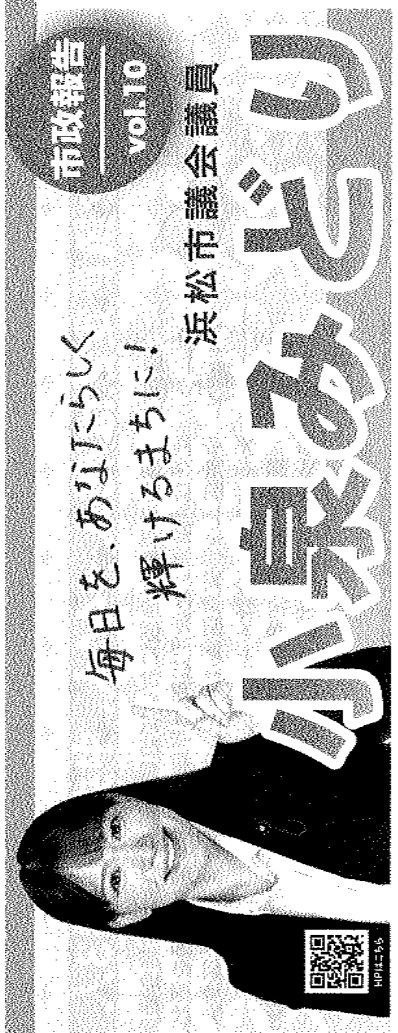 市政報告
vol.10
毎日を、あなたらしく
輝けるまちに!
浜松市議会議員
小泉みどり
HPはこちら